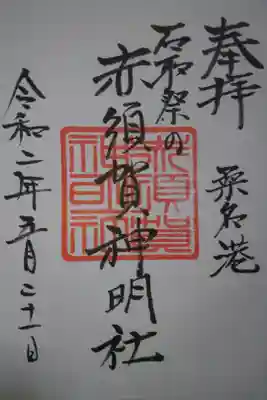 奉拝
桑名港
石取祭の
赤須賀神明社
令和二年五月二十一日